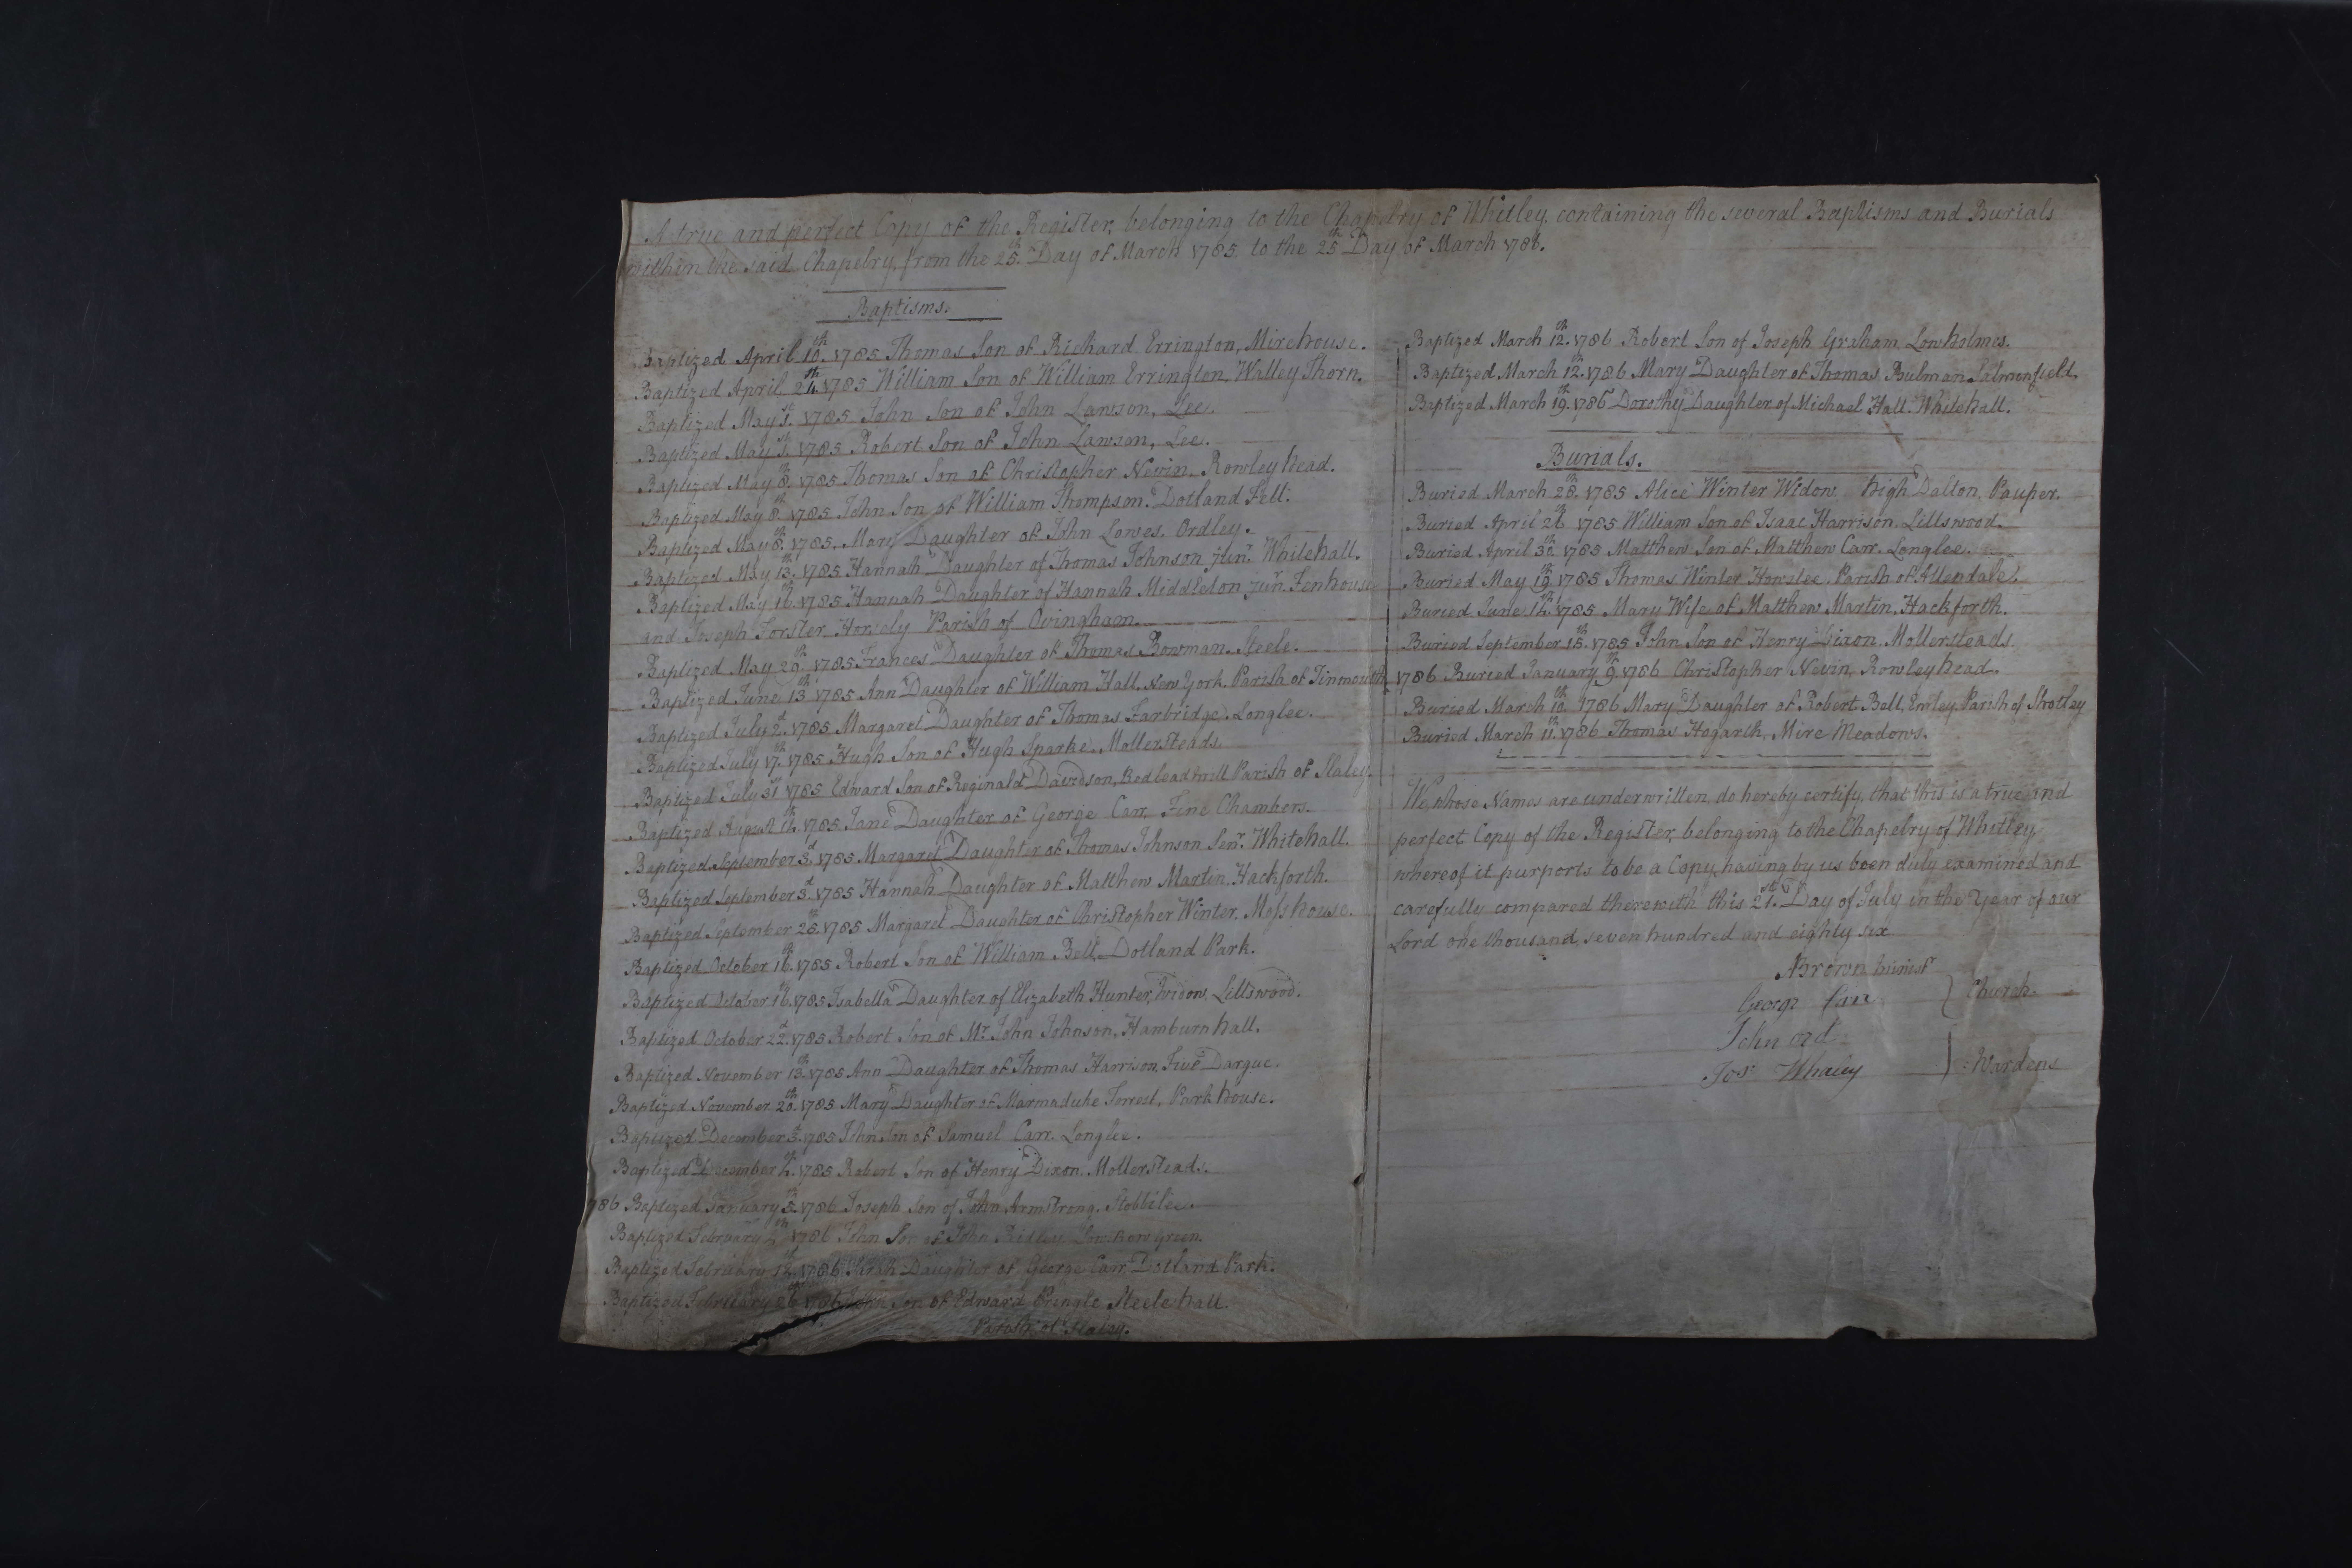 A true and perfect Copy of the Register, belonging to the Chapelry of Whitley, containing the several Baptisms and Burials
within the said Chapelry, from the 25th Day of March 1785, to the 25th Day of March 1786.
Baptisms.
Baptized April 10th 1785 Thomas Son of Richard Errington, Mirehouse.
Baptized April 24th 1785 William Son of William Errington, Walley Thorn.
Baptized May 1st 1785 John Son of John Lawson, Lee.
Baptized May 1st 1785 Robert Son of John Lawson, Lee.
Baptized May 8th 1785 Thomas Son of Christopher Nevin, Rowley head.
Baptized May 8th 1785 John Son of William Thompson, Dotland Fell.
Baptized May 8th 1785, Mary Daughter of John Lowes, Ordley.
Baptized May 13th 1785 Hannah Daughter of Thomas Johnson junr. Whitehall.
Baptized May 16th 1785 Hannah Daughter of Hannah Middleton junr. Fenhouse
and Joseph Forster, Horsely Parish of Ovingham.
Baptized May 20th 1785 Frances Daughter of Thomas Bowman, Steele.
Baptized June 13th 1785 Ann Daughter of William Hall, New York, Parish of Tinmouth
Baptized July 2d 1785 Margaret Daughter of Thomas Farbridge, Longlee.
Baptized July 17th 1785 Hugh Son of Hugh Sparke, Mollersteads.
Baptized July 31st 1785 Edward Son of Reginald Davidson, Redleadmill Parish of Slaley.
Baptized August 1785 Jane Daughter of George Carr, Fine Chambers.
Baptized September 3d 1785 Margaret Daughter of Thomas Johnson Senr. Whitehall.
Baptized September 3d 1785 Hannah Daughter of Matthew Martin, Hackforth.
Baptized September 25th 1785 Margaret Daughter of Christopher Winter, Moss house.
Baptized October 16th 1785 Robert Son of William Bell, Dotland Park.
Baptized October 16th 1785 Isabella Daughter of Elizabeth Hunter, Widow, Lillswood.
Baptized October 22d 1785 Robert Son of Mr. John Johnson, Hamburn hall.
Baptized November 13th 1785 Ann Daughter of Thomas Harrison, Five Dargue.
Baptized November 20th 1785 Mary Daughter of Marmaduke Forrest, Park house.
Baptized December 3d 1785 John Son of Samuel Carr, Longlee.
Baptized December 4th 1785 Robert Son of Henry Dixon, Mollersteads.
1786 Baptized January 5th 1786 Joseph Son of John Armstrong, Stobbilee.
Baptized February 1786 John Son of John Ridley Green.
Baptized February 12th 1786 Sarah Daughter of George Carr Dotland Park.
Baptized February 26th 1786 John Son of Edward Pringle Steele hall.
Parish of Slaley.
Baptized March 12th 1786 Robert Son of Joseph Graham, Lowholmes.
Baptized March 12th 1786 Mary Daughter of Thomas Bulman, Salmonfield.
Baptized March 19th 1786 Dorothy Daughter of Michael Hall, Whitehall.
Burials.
Buried March 28th 1785 Alice Winter Widow high Dalton, Pauper.
Buried April 26th 1785 William Son of Isaac Harrison, Lillswood.
Buried April 30th 1785 Matthew Son of Matthew Carr, Longlee.
Buried May 19th 1785 Thomas Winter Parish of Allendale.
Buried June 14th 1785 Mary Wife of Matthew Martin, Hackforth.
Buried September 15th 1785 John Son of Henry Dixon, Mollersteads.
1786 Buried January 9th 1786 Christopher Nevin, Rowley head.
Buried March 10th 1786 Mary Daughter of Robert Bell, Parish of Shotley
Buried March 11th 1786 Thomas Hogarth, Mire Meadows.
We, whose Names are underwritten, do hereby certify, that this is a true and
perfect Copy of the Register, belonging to the Chapelry of Whitley,
whereof it purports to be a Copy, having by us been duly examined and
carefully compared therewith this 21st Day of July in the Year of our
Lord one thousand seven hundred and eighty six
Brown Ministr
George Carr } Church-
John
Jos Whaley } :Wardens